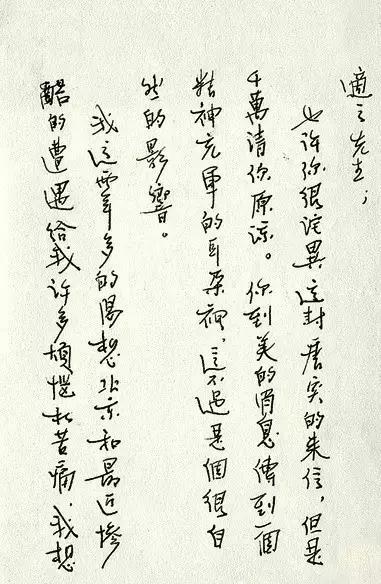 適之先生：
也许你很詫異這封唐突的来信，但是
千萬请你原諒。你到美的消息傳到一個
精神充軍的耳朵裡，這不過是個很自
然的影響。
我這两年多的渴想北京和最近慘
酷的遭遇给我许多煩惱和苦痛。我想